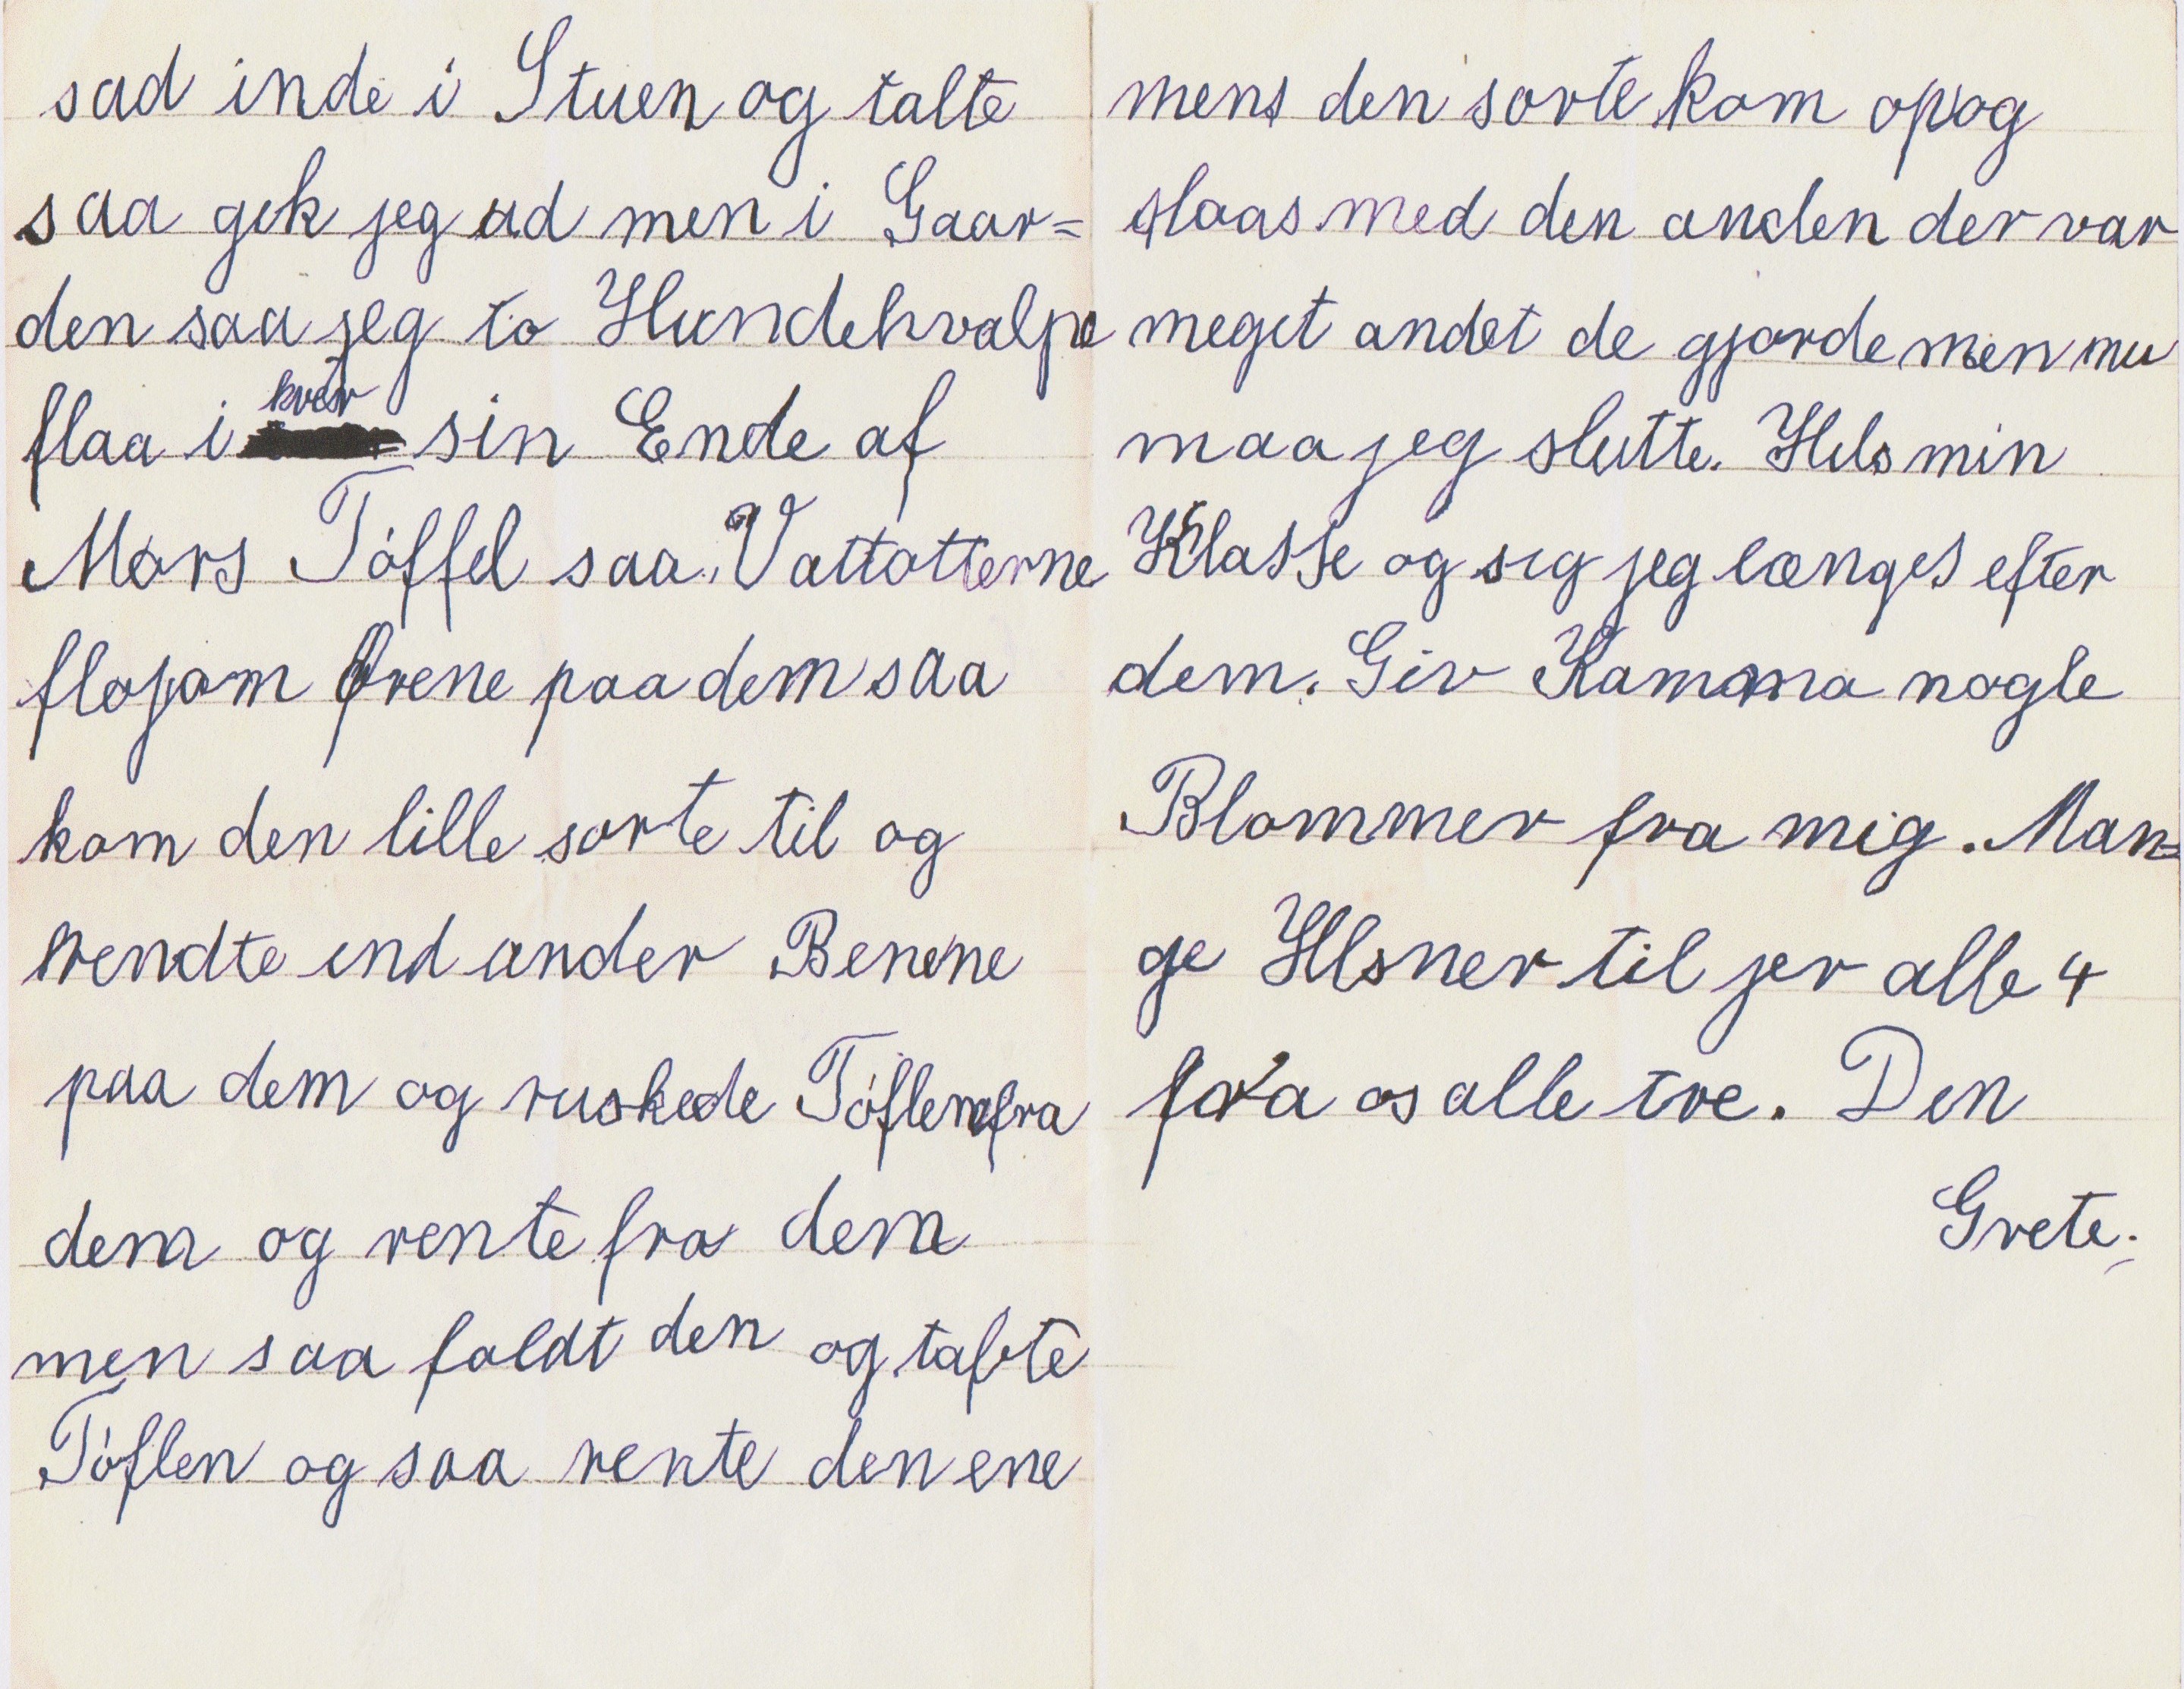 sad inde i Stuen og talte
saa gik jeg ud men i Gaar=
den saa jeg to Hundehvalpe
flaa i hver sin Ende af
Mors Töffel saa Vattotterne
fløj om Ørene paa dem saa
kom den lille sorte til og
rendte ind under Benene
paa dem og ruskede Töflen fra
dem og rente fra dem
men saa faldt den og tabte
Töflen og saa rente den ene
mens den sorte kom op og
slaas med den anden der var
meget andet de gjorde men nu
maa jeg slutte. Hils min
Klasse og sig jeg længes efter
dem. Giv Kamma nogle
Blommer fra mig. Man=
ge Hilsner til jer alle 4
fra os alle tre. Din
Grete.